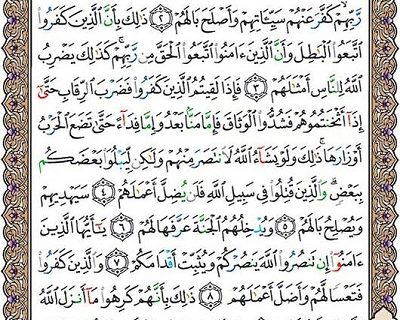 رَّبِّهِمْ كَفَّرَ عَنْهُمْ سَيِّـَٔاتِهِمْ وَأَصْلَحَ بَالَهُمْ ﴿٢﴾ ذَٰلِكَ بِأَنَّ ٱلَّذِينَ كَفَرُوا۟
ٱتَّبَعُوا۟ ٱلْبَٰطِلَ وَأَنَّ ٱلَّذِينَ ءَامَنُوا۟ ٱتَّبَعُوا۟ ٱلْحَقَّ مِن رَّبِّهِمْ ۚ كَذَٰلِكَ يَضْرِبُ
ٱللَّهُ لِلنَّاسِ أَمْثَٰلَهُمْ ﴿٣﴾ فَإِذَا لَقِيتُمُ ٱلَّذِينَ كَفَرُوا۟ فَضَرْبَ ٱلرِّقَابِ حَتَّىٰٓ
إِذَآ أَثْخَنتُمُوهُمْ فَشُدُّوا۟ ٱلْوَثَاقَ فَإِمَّا مَنًّۢا بَعْدُ وَإِمَّا فِدَآءً حَتَّىٰ تَضَعَ ٱلْحَرْبُ
أَوْزَارَهَا ۚ ذَٰلِكَ وَلَوْ يَشَآءُ ٱللَّهُ لَٱنتَصَرَ مِنْهُمْ وَلَٰكِن لِّيَبْلُوَا۟ بَعْضَكُم
بِبَعْضٍ ۗ وَٱلَّذِينَ قُتِلُوا۟ فِى سَبِيلِ ٱللَّهِ فَلَن يُضِلَّ أَعْمَٰلَهُمْ ﴿٤﴾ سَيَهْدِيهِمْ
وَيُصْلِحُ بَالَهُمْ ﴿٥﴾ وَيُدْخِلُهُمُ ٱلْجَنَّةَ عَرَّفَهَا لَهُمْ ﴿٦﴾ يَٰٓأَيُّهَا ٱلَّذِينَ
ءَامَنُوٓا۟ إِن تَنصُرُوا۟ ٱللَّهَ يَنصُرْكُمْ وَيُثَبِّتْ أَقْدَامَكُمْ ﴿٧﴾ وَٱلَّذِينَ كَفَرُوا۟
فَتَعْسًا لَّهُمْ وَأَضَلَّ أَعْمَٰلَهُمْ ﴿٨﴾ ذَٰلِكَ بِأَنَّهُمْ كَرِهُوا۟ مَآ أَنزَلَ ٱللَّهُ